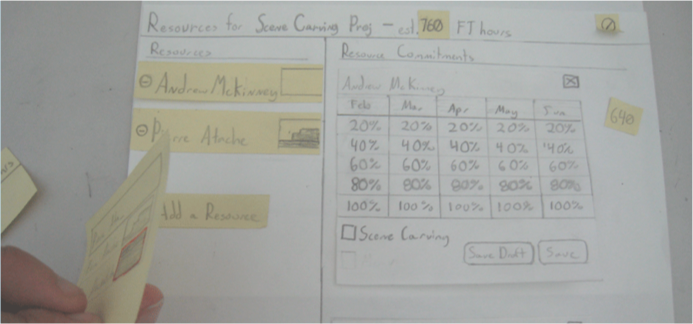 Resources for Scene Carving Proj - est. 760 FT hours
Resources
Andrew McKinney
Add a Resource
Resource Commitments
Andrew McKinney
Feb Mar Apr May Jun
20% 20% 20% 20% 20%
40% 40% 40% 40% 40%
60% 60% 60% 60% 60%
80% 80% 80% 80% 80%
100% 100% 100% 100% 100%
Scene Carving
Save Draft Save
640